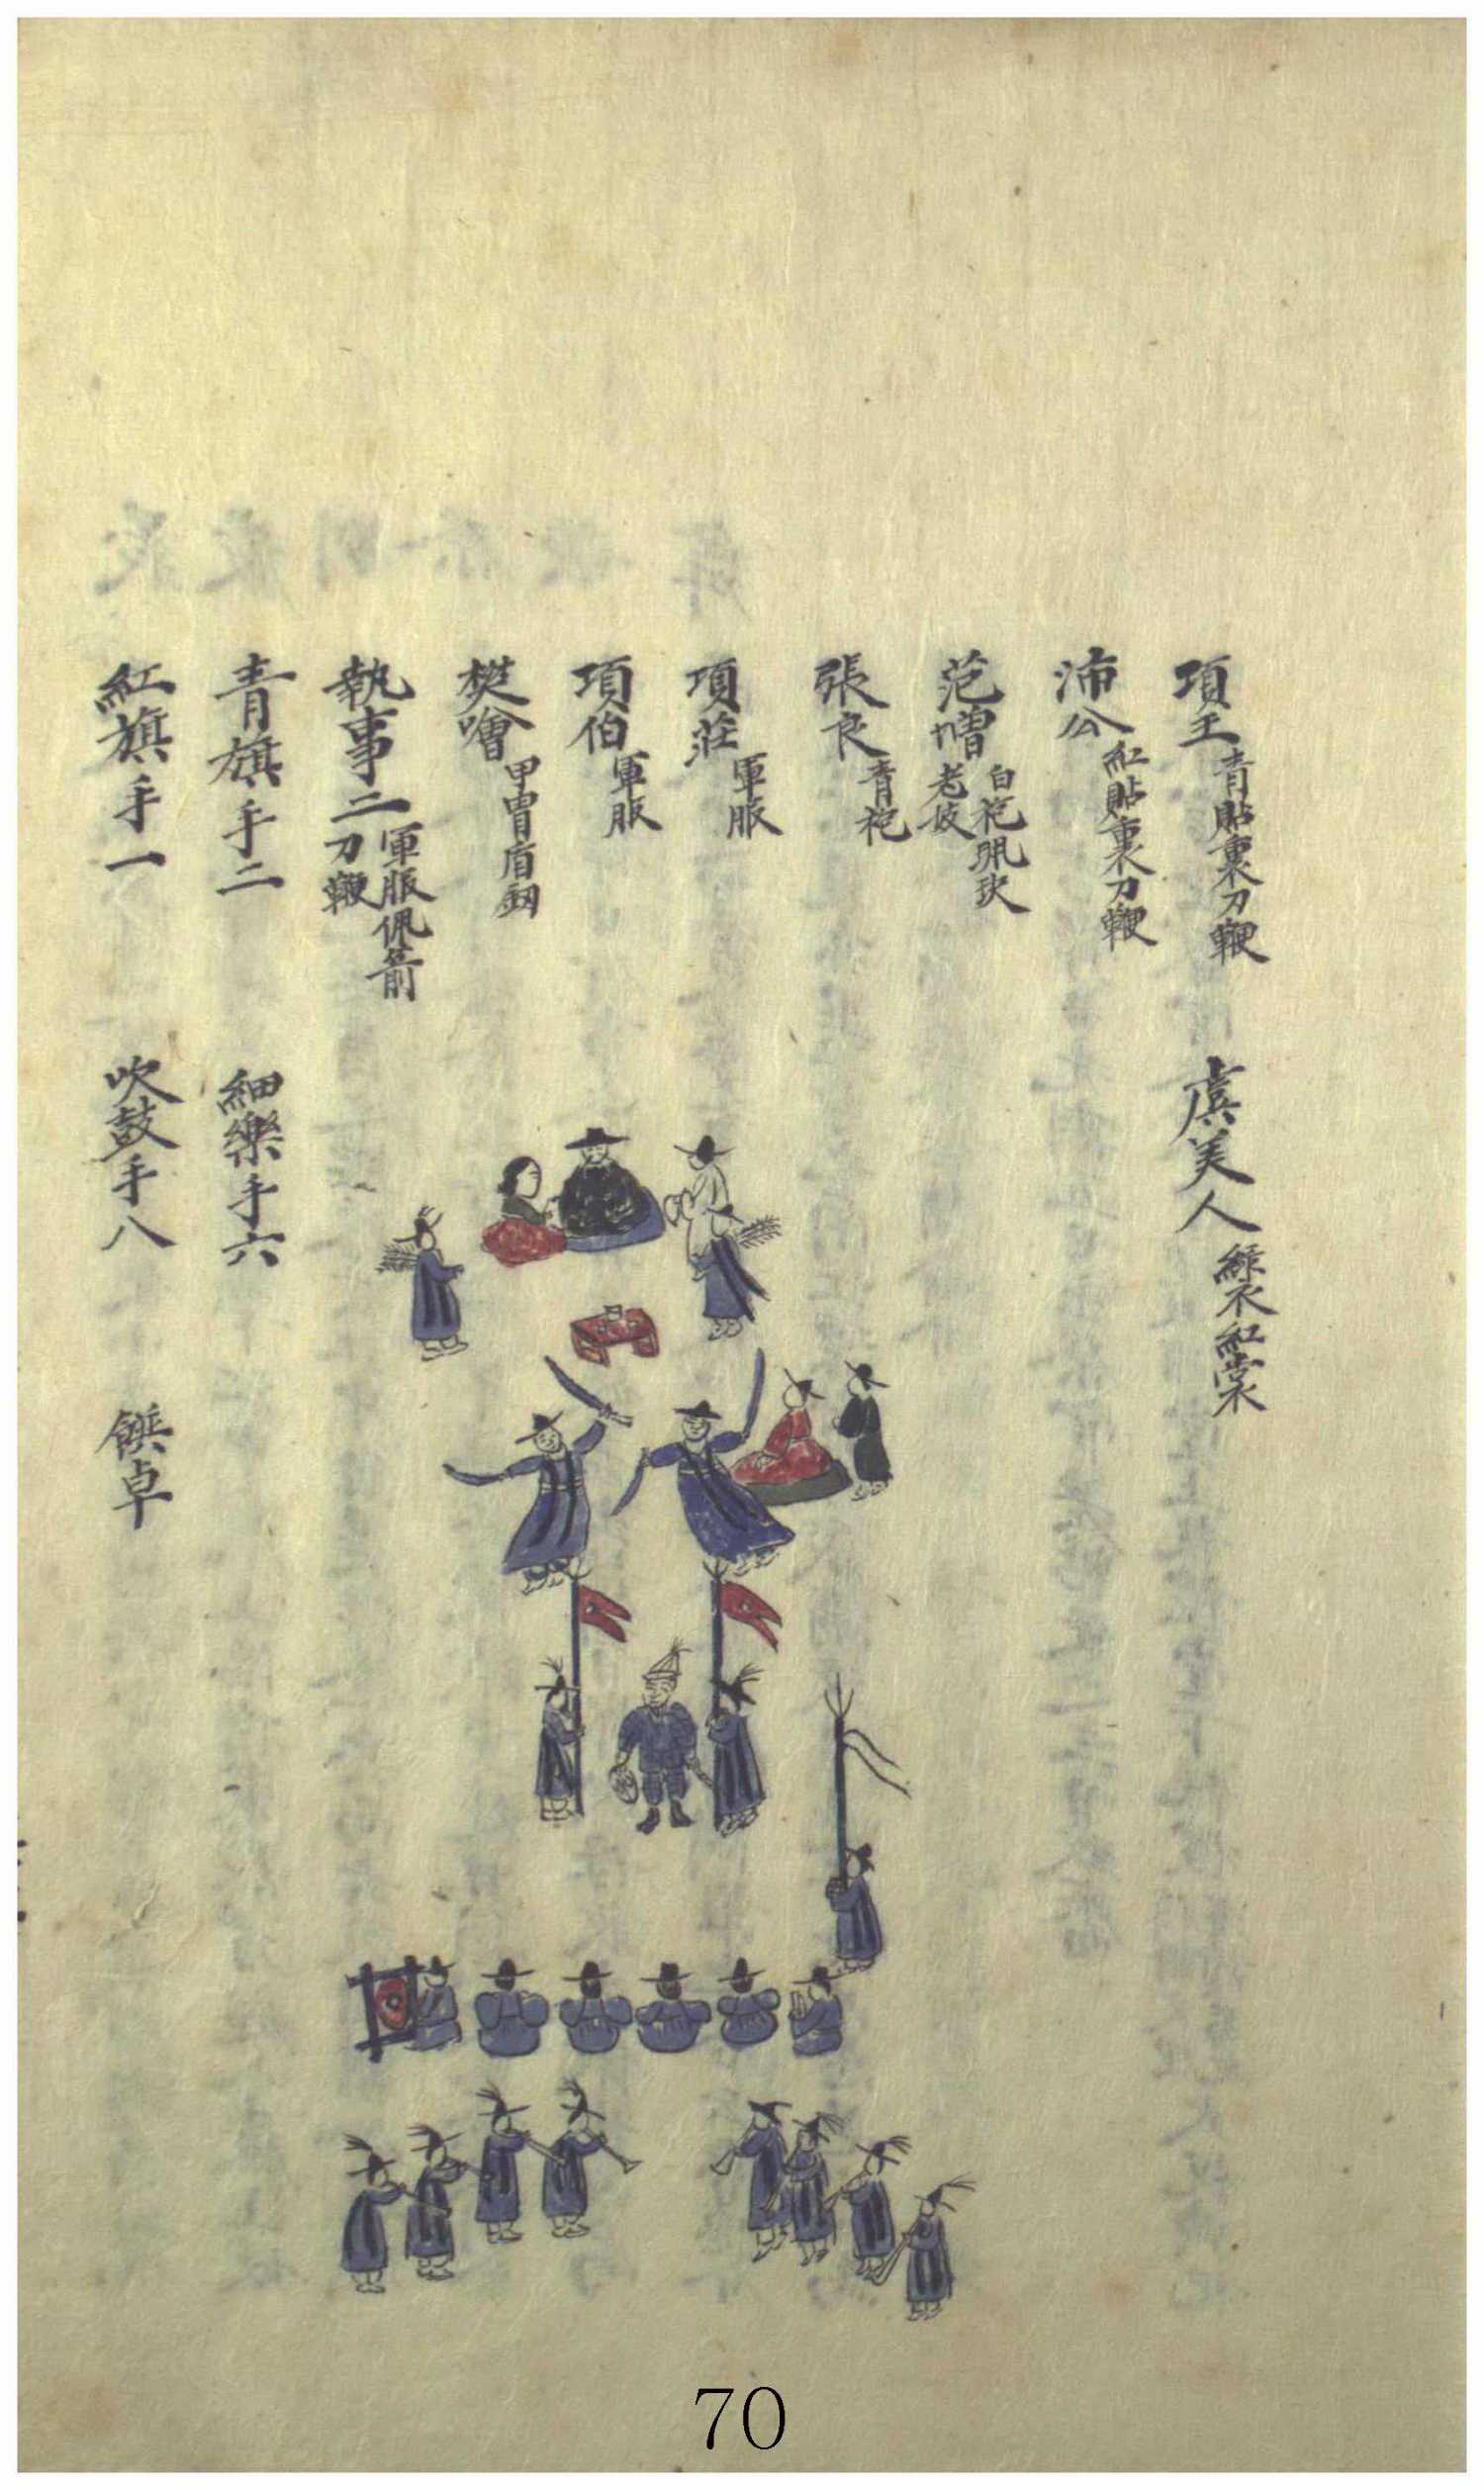 項王 青貼裏刀鞭 虞美人 綠衣紅裳
沛公 紅貼裏刀鞭
范增 白袍珮玦 老妝
張良 青袍
項莊 軍服
項伯 軍服
樊噲 甲冑盾釰
執事二 軍服佩箭 刀鞭
青旗手二 細樂手六
紅旗手一 吹鼓手八 饌卓
70